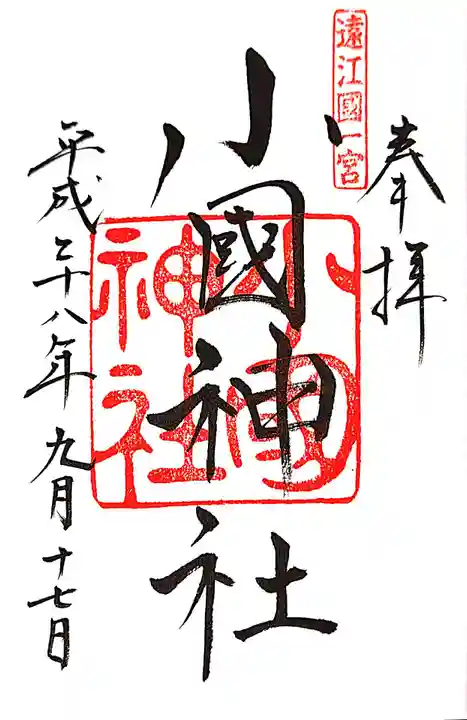 遠江國一宮
奉拝
小國神社
小國神社
平成二十八年九月十七日